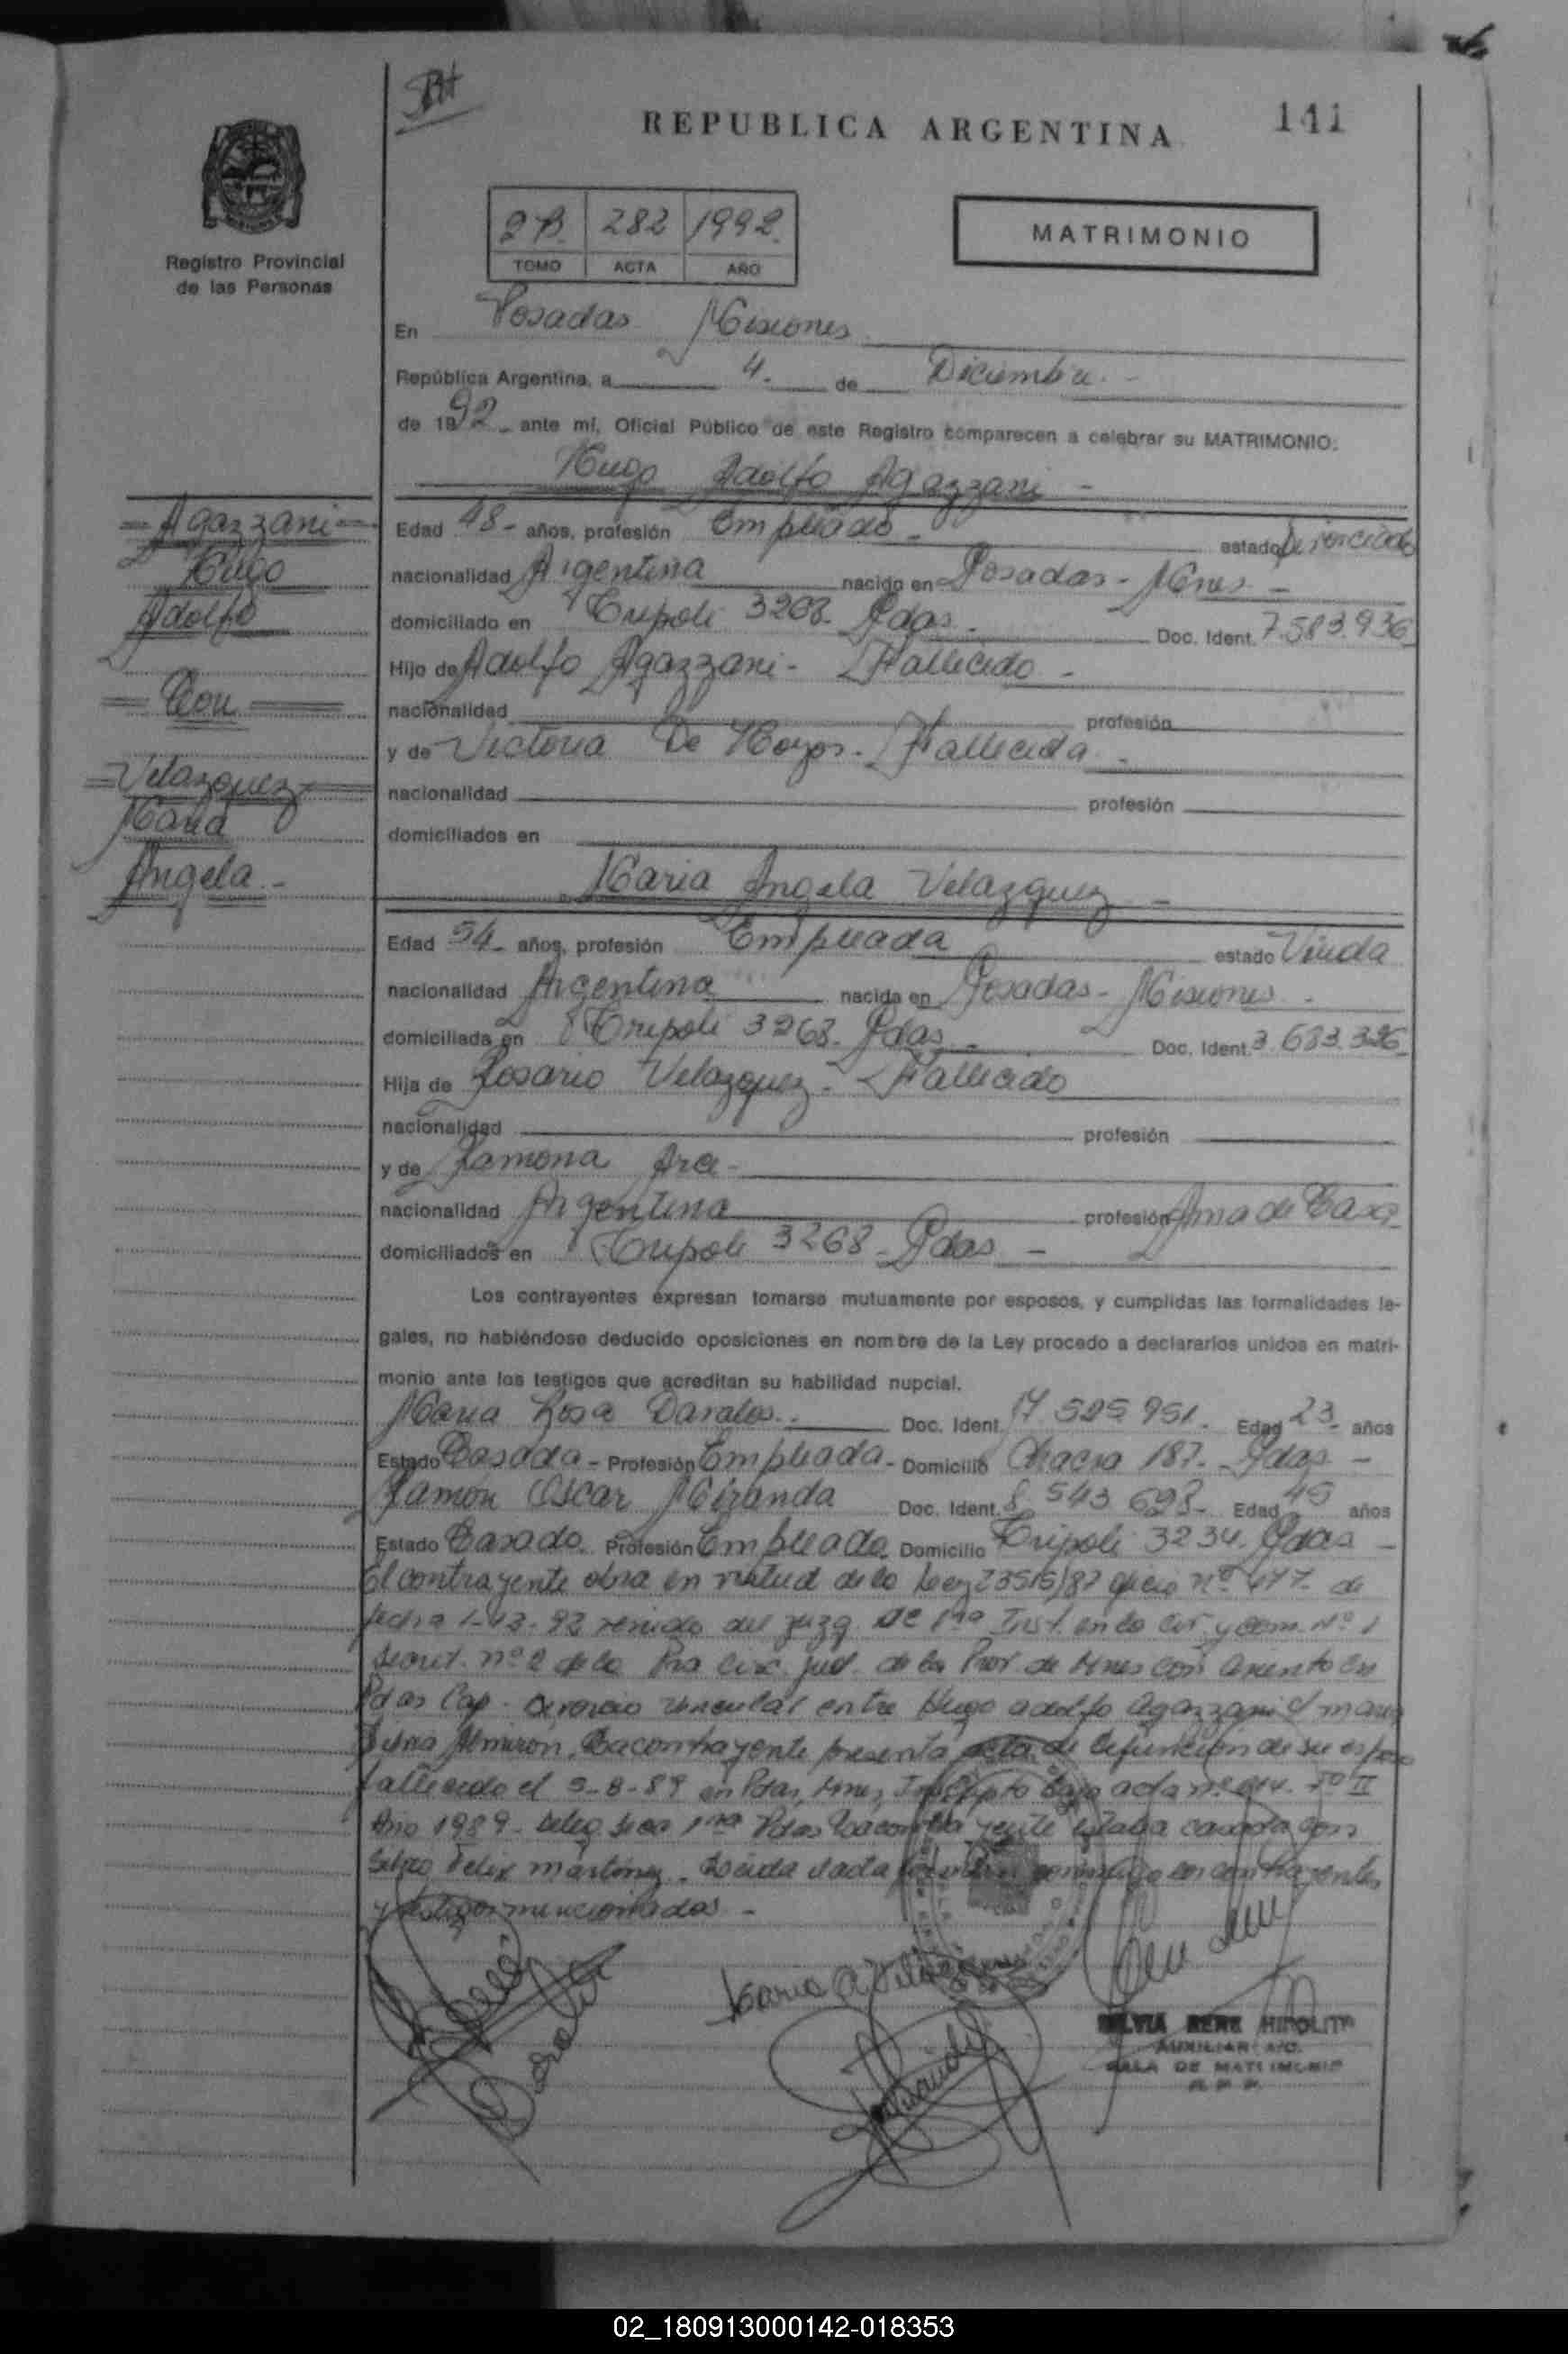 REPUBLICA ARGENTINA
141
Registro Provincial
de las Personas
2B. 282 1992.
TOMO ACTA AÑO
MATRIMONIO
En Posadas Misiones
República Argentina, a 4. de Diciembre. -
de 1992 - ante mí, Oficial Público de este Registro comparecen a celebrar su MATRIMONIO:
Hugo Adolfo Agazzani -
Agazzani
Hugo
Adolfo
Con
Velazquez
Maria
Angela -
Edad 48 - años, profesión Empleado - estado Divorciado
nacionalidad Argentina nacido en Posadas - Mnes -
domiciliado en Tripoli 3268 - Pdas - Doc. Ident. 7.583.936
Hijo de Adolfo Agazzani - Fallecido -
nacionalidad profesión
y de Victoria De Hoyos - Fallecida -
nacionalidad profesión
domiciliados en
Maria Angela Velazquez -
Edad 54 - años, profesión Empleada estado Viuda
nacionalidad Argentina nacida en Posadas - Misiones -
domiciliada en Tripoli 3268 - Pdas - Doc. Ident. 3.683.326
Hija de Rosario Velazquez - Fallecido
nacionalidad profesión
y de Ramona
nacionalidad Argentina profesión Ama de Casa
domiciliados en Tripoli 3268 - Pdas -
Los contrayentes expresan tomarse mutuamente por esposos, y cumplidas las formalidades le-
gales, no habiéndose deducido oposiciones en nombre de la Ley procedo a declararlos unidos en matri-
monio ante los testigos que acreditan su habilidad nupcial.
Maria Rosa Davalos Doc. Ident. 17 595 951 - Edad 23 - años
Estado Casada - Profesión Empleada - Domicilio Chacra 187 - Pdas -
Ramón Oscar Miranda Doc. Ident. 8 543 693 - Edad 45 años
Estado Casado. Profesión Empleado. Domicilio Tripoli 3234. Pdas -
El contrayente obra en virtud de la Ley 23515/87 oficio nº 477 - de
fecha del juzg. de 1ra Inst. en lo civ. y com. Nº 1
Secret. nº 2 de la Pra Circ. jud. de la Prov. de Mnes con asiento en
Pdas Cap - divorcio vincular entre Hugo adolfo Agazzani y maria
Almiron. La contrayente presenta acta de defunción de su esposo
fallecido el 5-8-89 en Pdas, Mnes, Inscripto bajo acta nº 914 - Tº II
Año 1989 - 1ra Pdas La contrayente estaba casada con
Felix martinez. Leida el acta conmigo los contrayentes
y testigos mencionados -
Maria A Velazquez
SILVIA RENE HIPOLITO
AUXILIAR A/C.
SALA DE MATRIMONIO
R. P. P.
02_180913000142-018353